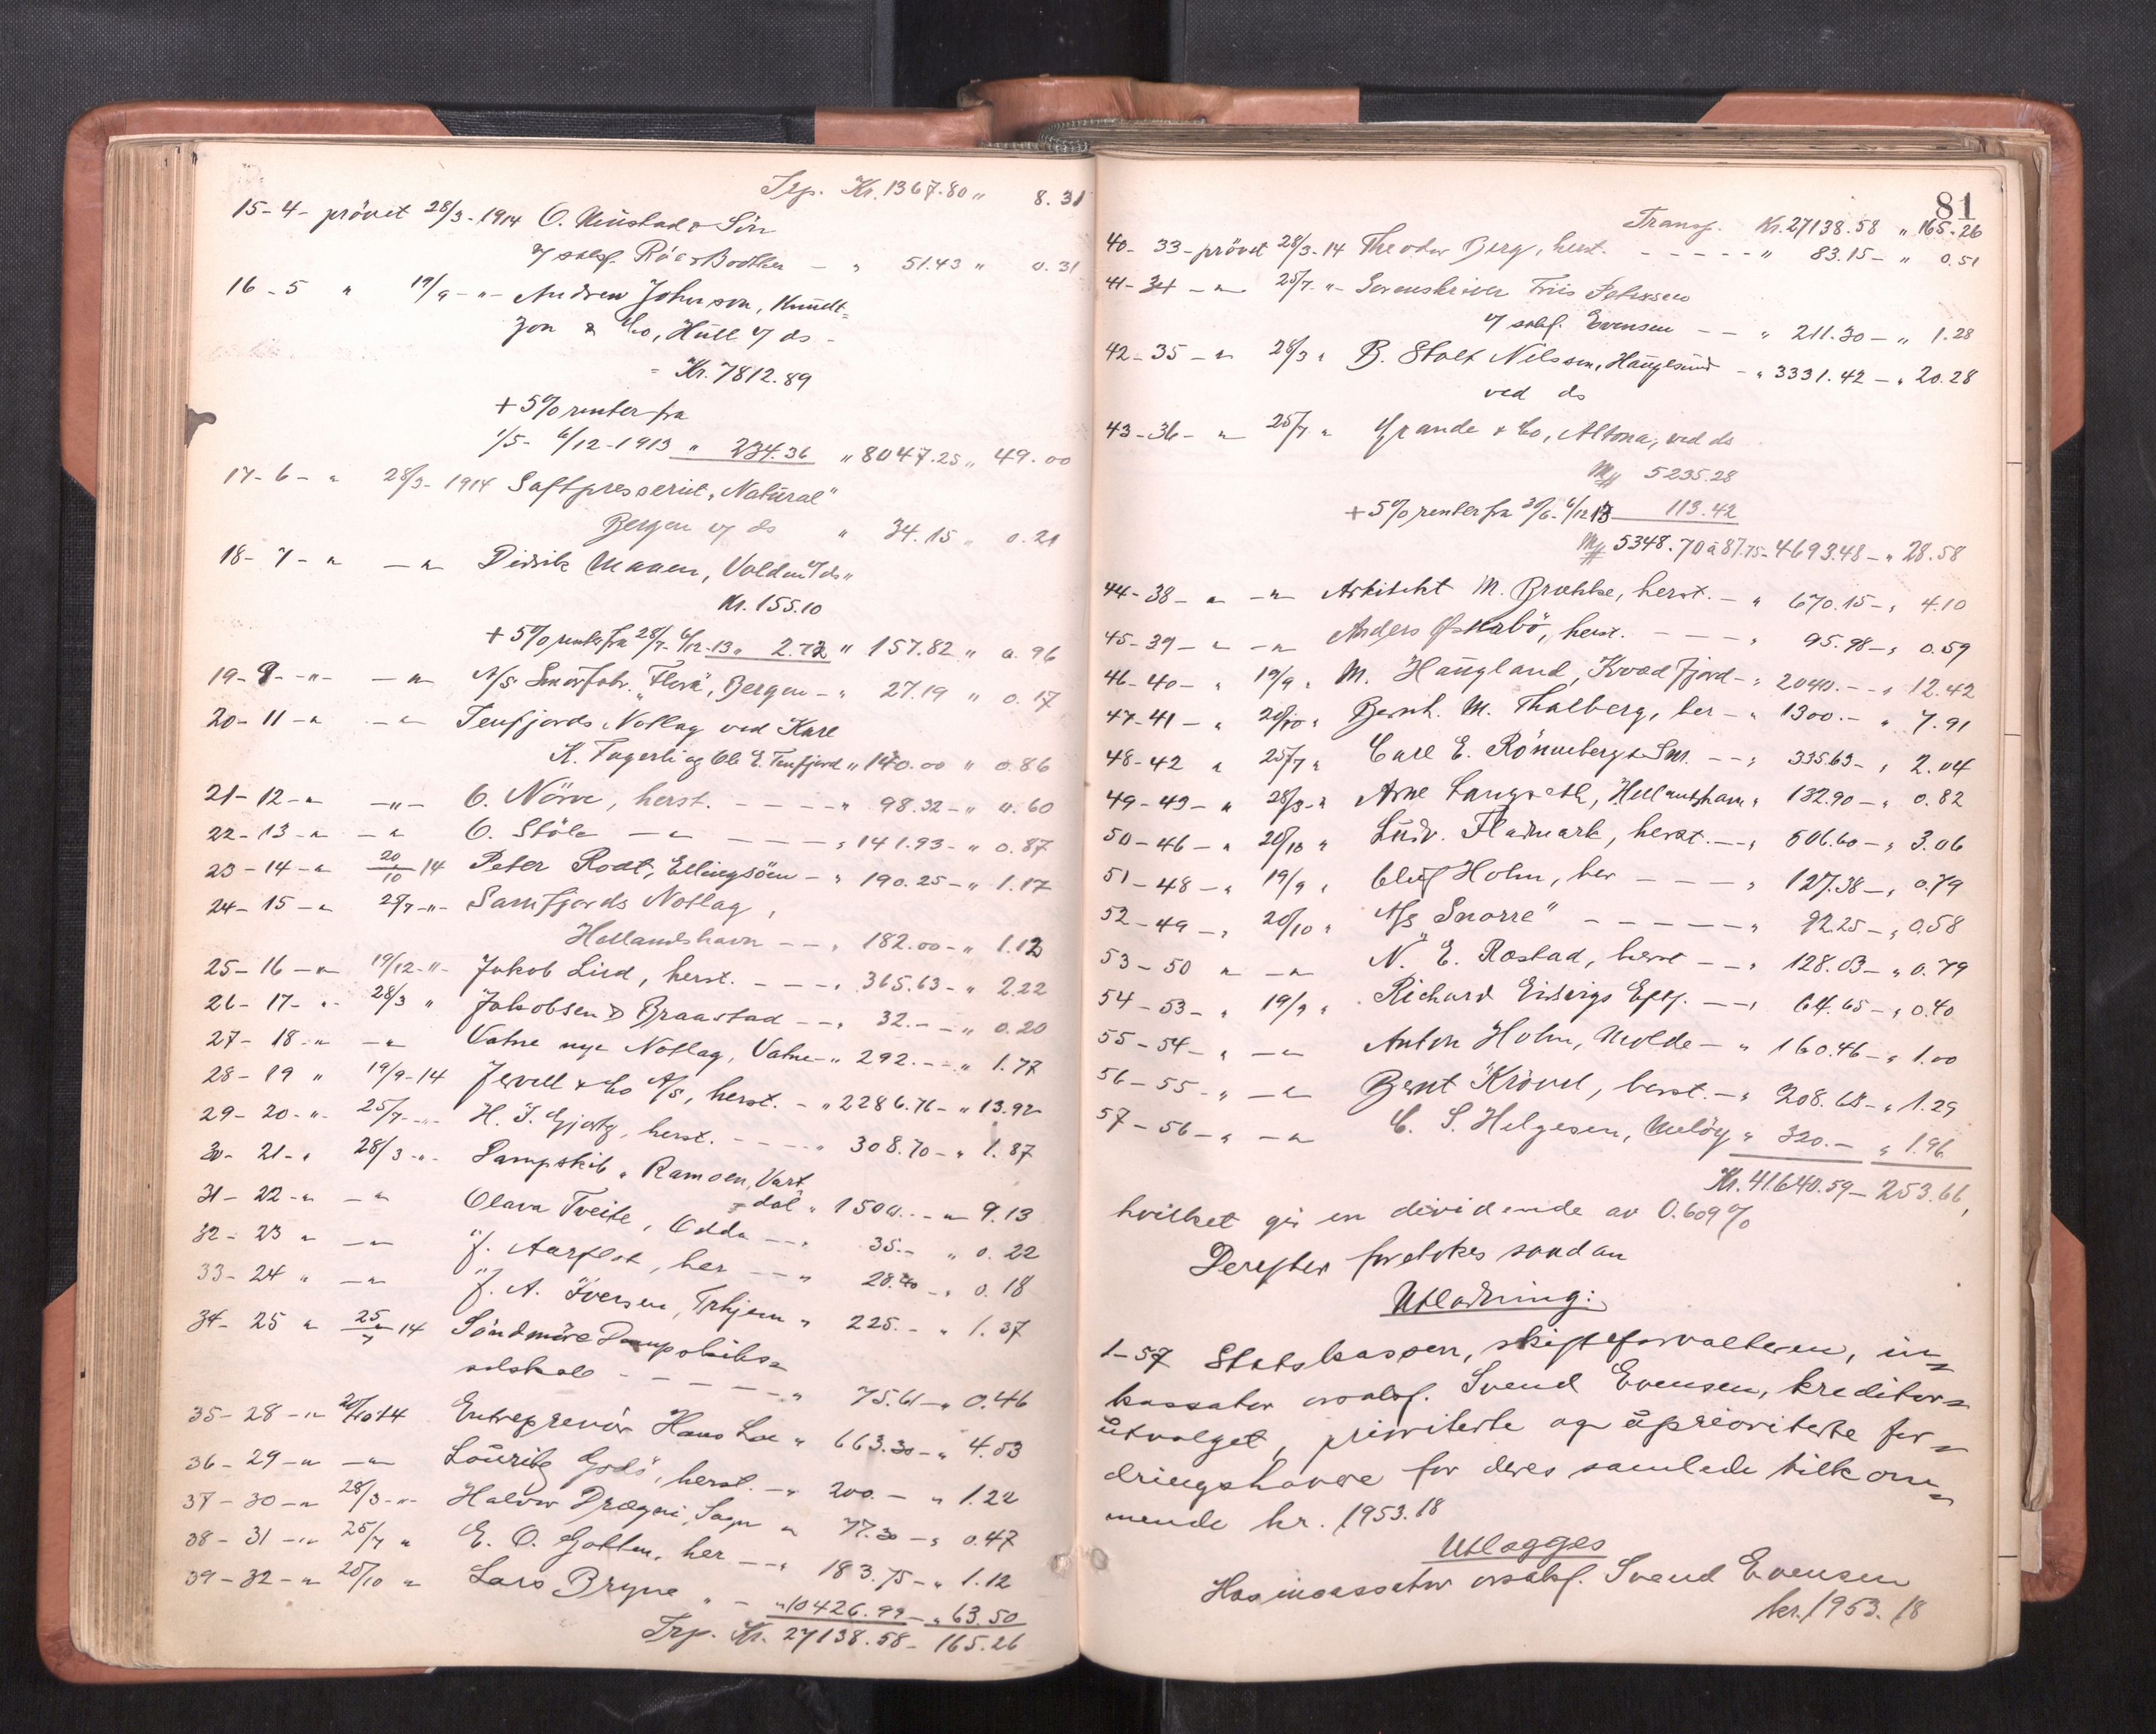 Trp. Kr. 1367.80 " 8.31
15-4- prövet 28/3-1914 O. Mustad & Sön
v/ sakf. Röa Bodtker - " 51.43 " 0.31
16-5 " 19/9 - " - Andrew Johnson, Knudt=
zon & Co, Hull v/ ds -
= Kr. 7812.89
+ 5% renter fra
1/5- 6/12-1913 " 234.36 " 8047.25 " 49.00
17-6- " 28/3-1914 Saftpresseriet "Natural"
Bergen v/ ds " 34.15 " 0.21
18-7-" -"- Didrik Maaen, Volden v/ ds "
Kr. 155.10
+ 5% renter fra 28/7- 6/12-13 " 2.72 " 157.82 " 0.96
19-9--"- -"- A/S Smörfabr. "Flora", Bergen - " 27.19 " 0.17
20-11-" -"- Tenfjords Notlag ved Karl
K. Fagerli og Ole E. Tenfjord " 140.00 " 0.86
21-12-" -"- O. Nörve, herst. - - - - " 98.32-" 0.60
22-13-" -"- O. Stöle -"- - - - - " 141.93-" 0.87
23-14-" 20/10 14 Peter Rodt, Ellingsöen - " 190.25-" 1.17
24-15-" 25/7-"- Samfjords Notlag,
Hellandshavn - - " 182.00-" 1.12
25-16-"- 19/12-"- Jakob Lied, herst. - - - " 365.63-" 2.22
26-17-"- 28/3 " Jakobsen & Braastad - - " 32.- -" 0.20
27-18-" -"- Vatne nye Notlag, Vatne-" 292.- -" 1.77
28-19 " 19/9-14 Jervell & Co A/S, herst. - " 2286.76-" 13.92
29-20-"- 25/7-"- H. I. Gjørtz, herst. - - - - " 308.70-" 1.87
30-21-" 28/3-"- Dampskib "Ramoen, Vart=
dal " 1500.- -"- 9.13
31-22-" -"- Olava Tveite, Odda - - " 35.- " 0.22
32-23 " -"- J. Aarflot, her - - " 28.40-" 0.18
33-24 " -"- J. A. Iversen, Trhjem " 225.- " 1.37
34-25 " 25/7 14 Söndmöre Dampskibs=
selskab - - - - - " 75.61-" 0.46
35-28-"- 20/10 14 Entreprenör Hans Loe " 663.30-" 4.03
36-29-" -"- Louritz Godö, herst. - " 200.- " 1.22
37-30-" 28/3-"- Halvor Drægni, Sogn " 77.30-" 0.47
38-31-"- 25/7 " E. O. Gotten, her - - " 183.75-" 1.12
39-32-" 20/10 " Lars Bryne " - " 10426.99-" 63.50
Trp. Kr. 27138.58- 165.26
81
Transp. Kr. 27138.58 " 165.26
40-33-prövet 28/3-14 Theodor Berg, herst. - - - - - " 83.15-" 0.51
41-34-" 25/7-"- Sorenskriver Friis Petersen
v/ sakf. Evensen - - " 211.30-" 1.28
42-35-" 28/3 " B. Stolt Nilssen, Haugesund - " 3331.42-" 20.28
ved ds
43-36-" 25/7 " Grande & Co, Altona, ved ds
Mk 5235.28
+ 5% renter fra 30/6- 6/12 13 113.42
Mk 5348.70 à 87.75- 4693.48-" 28.58
44-38-" -"- Arkitekt M. Brække, herst. - " 670.15-" 4.10
45-39-" -"- Anders Østrabö, herst. - - - " 95.98-" 0.59
46-40-" 19/9 " M. Haugland, Kvædfjord-" 2040.- -" 12.42
47-41-" 20/10 " Bernh. M. Thalberg, her-" 1300.- " 7.91
48-42 " 25/7 " Carl E. Rönneberg & Sön. - - " 335.63-" 2.04
49-43-" 28/3-" Arne Langseth, Hellandshavn " 132.90-" 0.82
50-46-" 20/10 " Ludv. Fladmark, herst. - - " 506.60-" 3.06
51-48-" 19/9 " Oluf Holm, her - - - " 127.38-" 0.79
52-49-" 20/10 " A/S "Snorre" - - - - - " 92.25-" 0.58
53-50 " -"- N. E. Rostad, herst - - " 128.03-" 0.79
54-53-" 19/9 " Richard Eidsvigs Eftf. - - " 64.65-" 0.40
55-54-" -"- Anton Holm, Molde-" 160.46-" 1.00
56-55-" -"- Bernt Krövel, herst. - " 208.68-" 1.29
57-56-" -"- C. S. Helgesen, Melöy " 320.- " 1.96
Kr. 41640.59- 253.66,
hvilket gir en dividende av 0.609%
Derefter foretokes saadan
Utlodning:
1-57 Statskassen, skifteforvalteren, in=
kassator o.r.sakf. Svend Evensen, kreditor=
utvalget, prioriterte og uprioriterte for=
dringshavere for deres samlede tilkom=
mende kr. 1953.18
Utlægges
Hos incassator o.r.sakf. Svend Evensen
kr. 1953.18